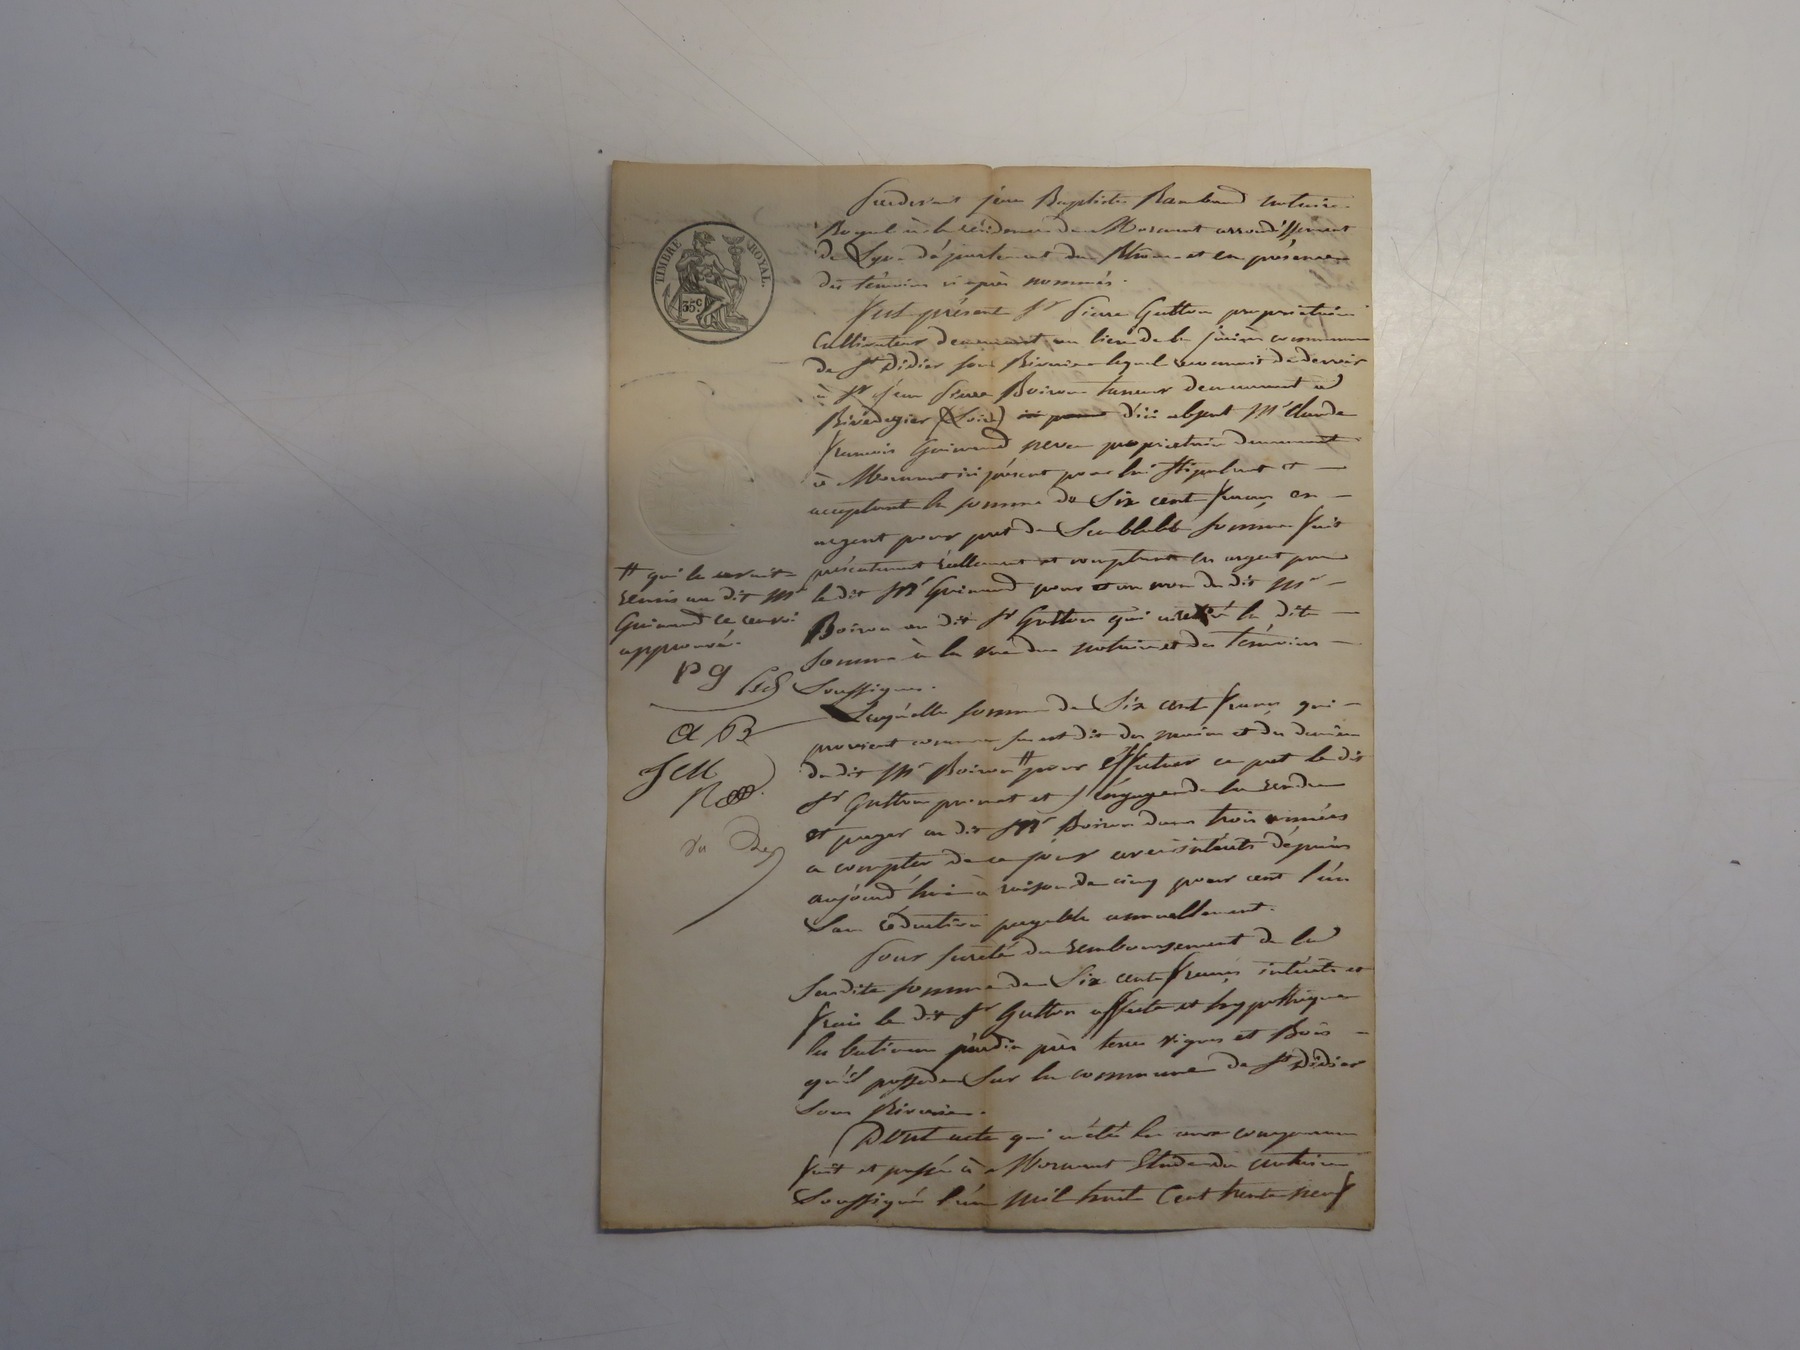 TIMBRE ROYAL.
35c.
Pardevant jean Baptiste Rambaud notaire
Royal à la résidence de Mornant arrondissement
de Lyon département du Rhône et en présence
des témoins ci après nommés.
fut présent Sr Pierre Gutton propriétaire
Cultivateur demeurant au lieu de la commune
de St Didier sous Riverie lequel reconnait de devoir
à Sr jean Pierre Boiron tanneur demeurant a
Rivedegier (Loire) d'ici absent Mr Claude
francois Guinand propriétaire demeurant
à Mornant ici présent pour lui stipulant et
acceptant la somme de Six cent francs en
argent pour pret de Semblable somme fait
présentement réellement et comptant en argent par
le dit Mr Guinand pour et au nom du dit Mr
Boiron au dit Sr Gutton qui a retiré la dite
somme à la vue du notaire et des témoins
Soussignés.
Laquelle somme de Six cent francs qui
provient comme sus est dit des mains et des deniers
du dit Mr Boiron # pour effectuer ce pret le dit
Sr Gutton promet et s'engage de la rendre
et payer au dit Mr Boiron dans trois années
a compter de ce jour avec intérêts dépuis
aujourd'hui à raison de cinq pour cent l'an
Sans réduction payable annuellement.
Pour sureté du remboursement de la
Susdite somme de Six cent francs intérêts et
frais le dit Sr Gutton affecte et hypothèque
les batimens jardin près terres vignes et Bois
qu'il possède Sur la commune de St Didier
Sous Riverie.
Dont acte qui a été lu aux comparans
fait et passé à Mornant Etude du notaire
Soussigné l'an mil huit Cent trente neuf
# qui la avait
remis au dit Mr
Guinand ce renvoi
approuvé.
P G